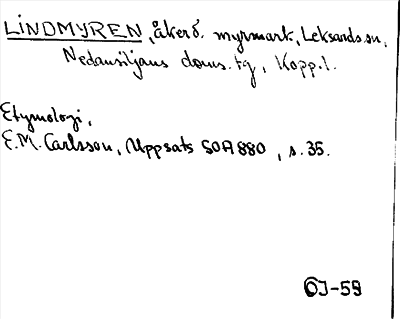 LINDMYREN, åker o. myrmark, Leksands sn,
Nedansiljans doms. tg, Kopp. l.
Etymologi,
E.M. Carlsson, Uppsats SOA 880, s. 35.
OJ-59